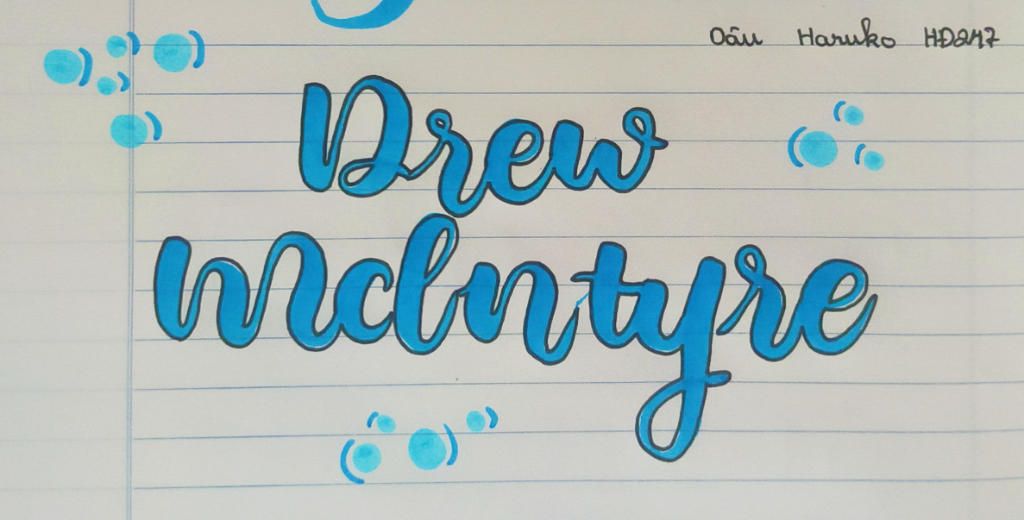 Oâu Haruko HĐ247
Drew
McIntyre